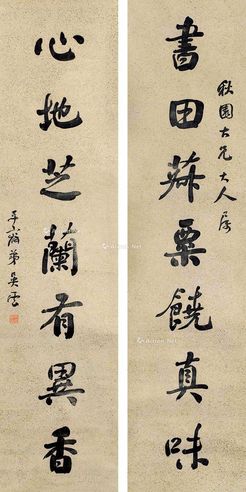 秋園大兄大人屬
書田菽粟饒真味
心地芝蘭有異香
平齋弟吳雲